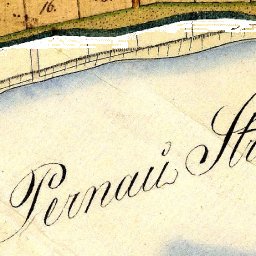 16.
Pernaŭ Str